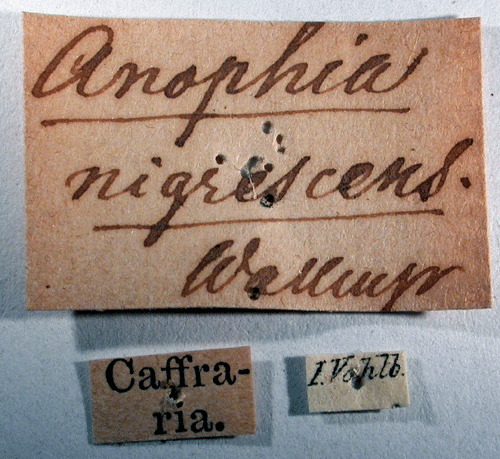 Anophia
nigrescens.
Wallengr
Caffra-
ria.
J. Vahlb.